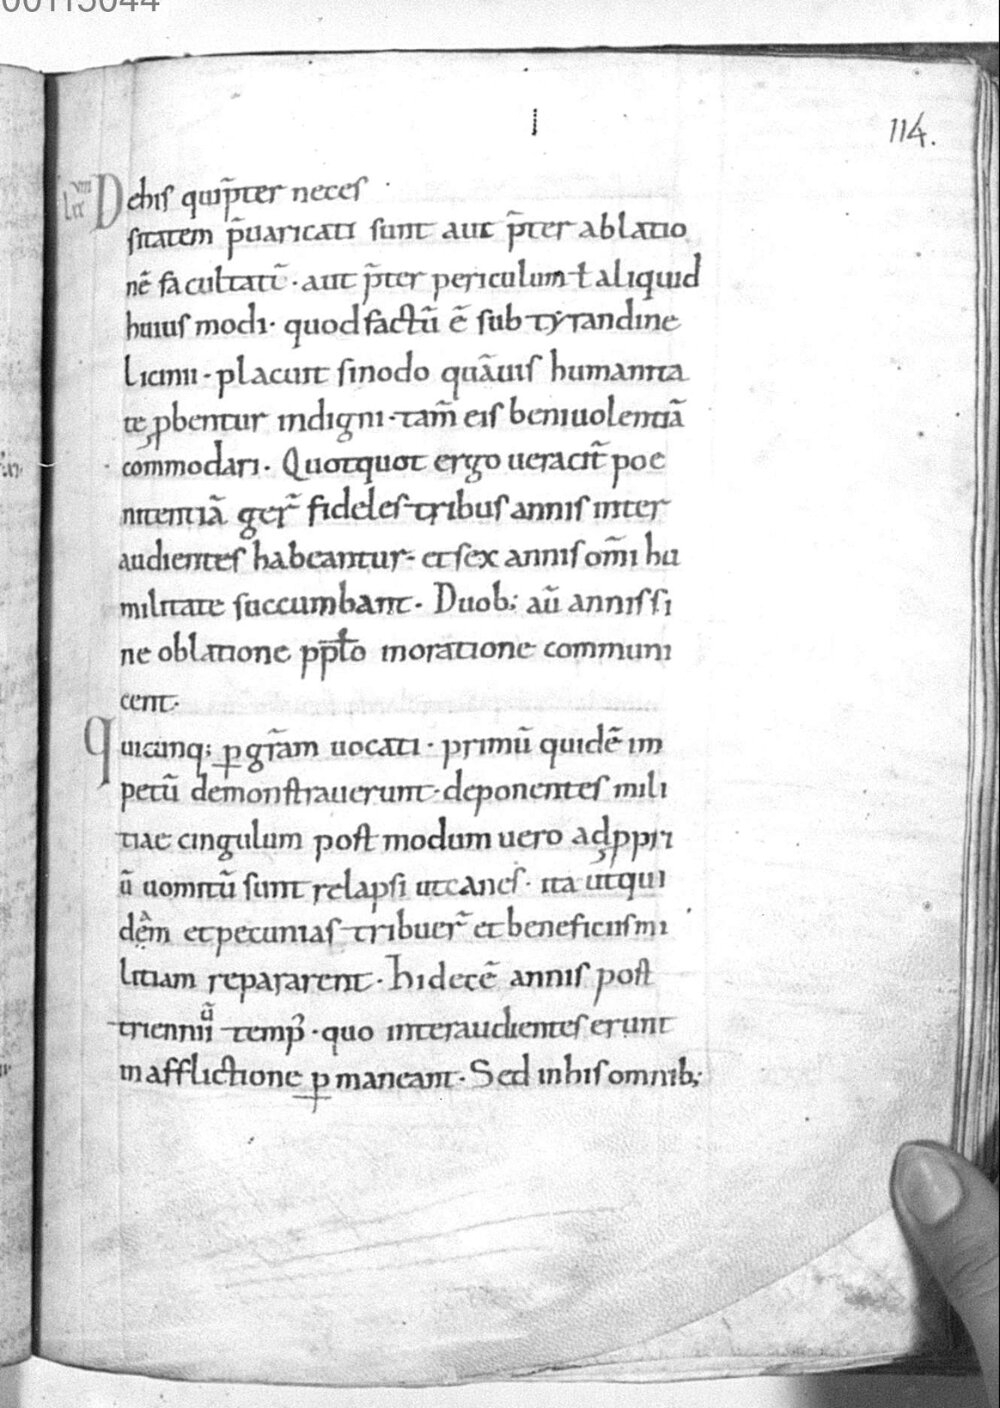 00115044
114.
De his qui p̄ter neces
sitatem p̄uaricati sunt aut p̄ter ablatio
nē facultatū · aut p̄ter periculum ł aliquid
huius modi · quod factū ē sub tẏrandine
Licinii · placuit sinodo quāuis humanita
te ꝓbentur indigni · tam̄ eis beniuolentiā
commodari · Quotquot ergo ueracit̄ poe
nitentiā ger̄ fideles · tribus annis inter
audientes habeantur · et sex annis om̄i hu
militate succumbant · Duob; aū annis si
ne oblatione pp̄lo in oratione communi
cent ·
Quicunq; ꝑ gr̄am uocati · primū quidē im
petū demonstrauerunt · deponentes mili
tiae cingulum post modum uero ad ꝓpri
ū uomitū sunt relapsi ut canes · ita ut qui
dēm et pecunias tribuer̄ et beneficiis mi
litiam repararent · hi decē annis post
triennii temp̄ · quo inter audientes erunt
in afflictione ꝑmaneant · Sed in his omnib;